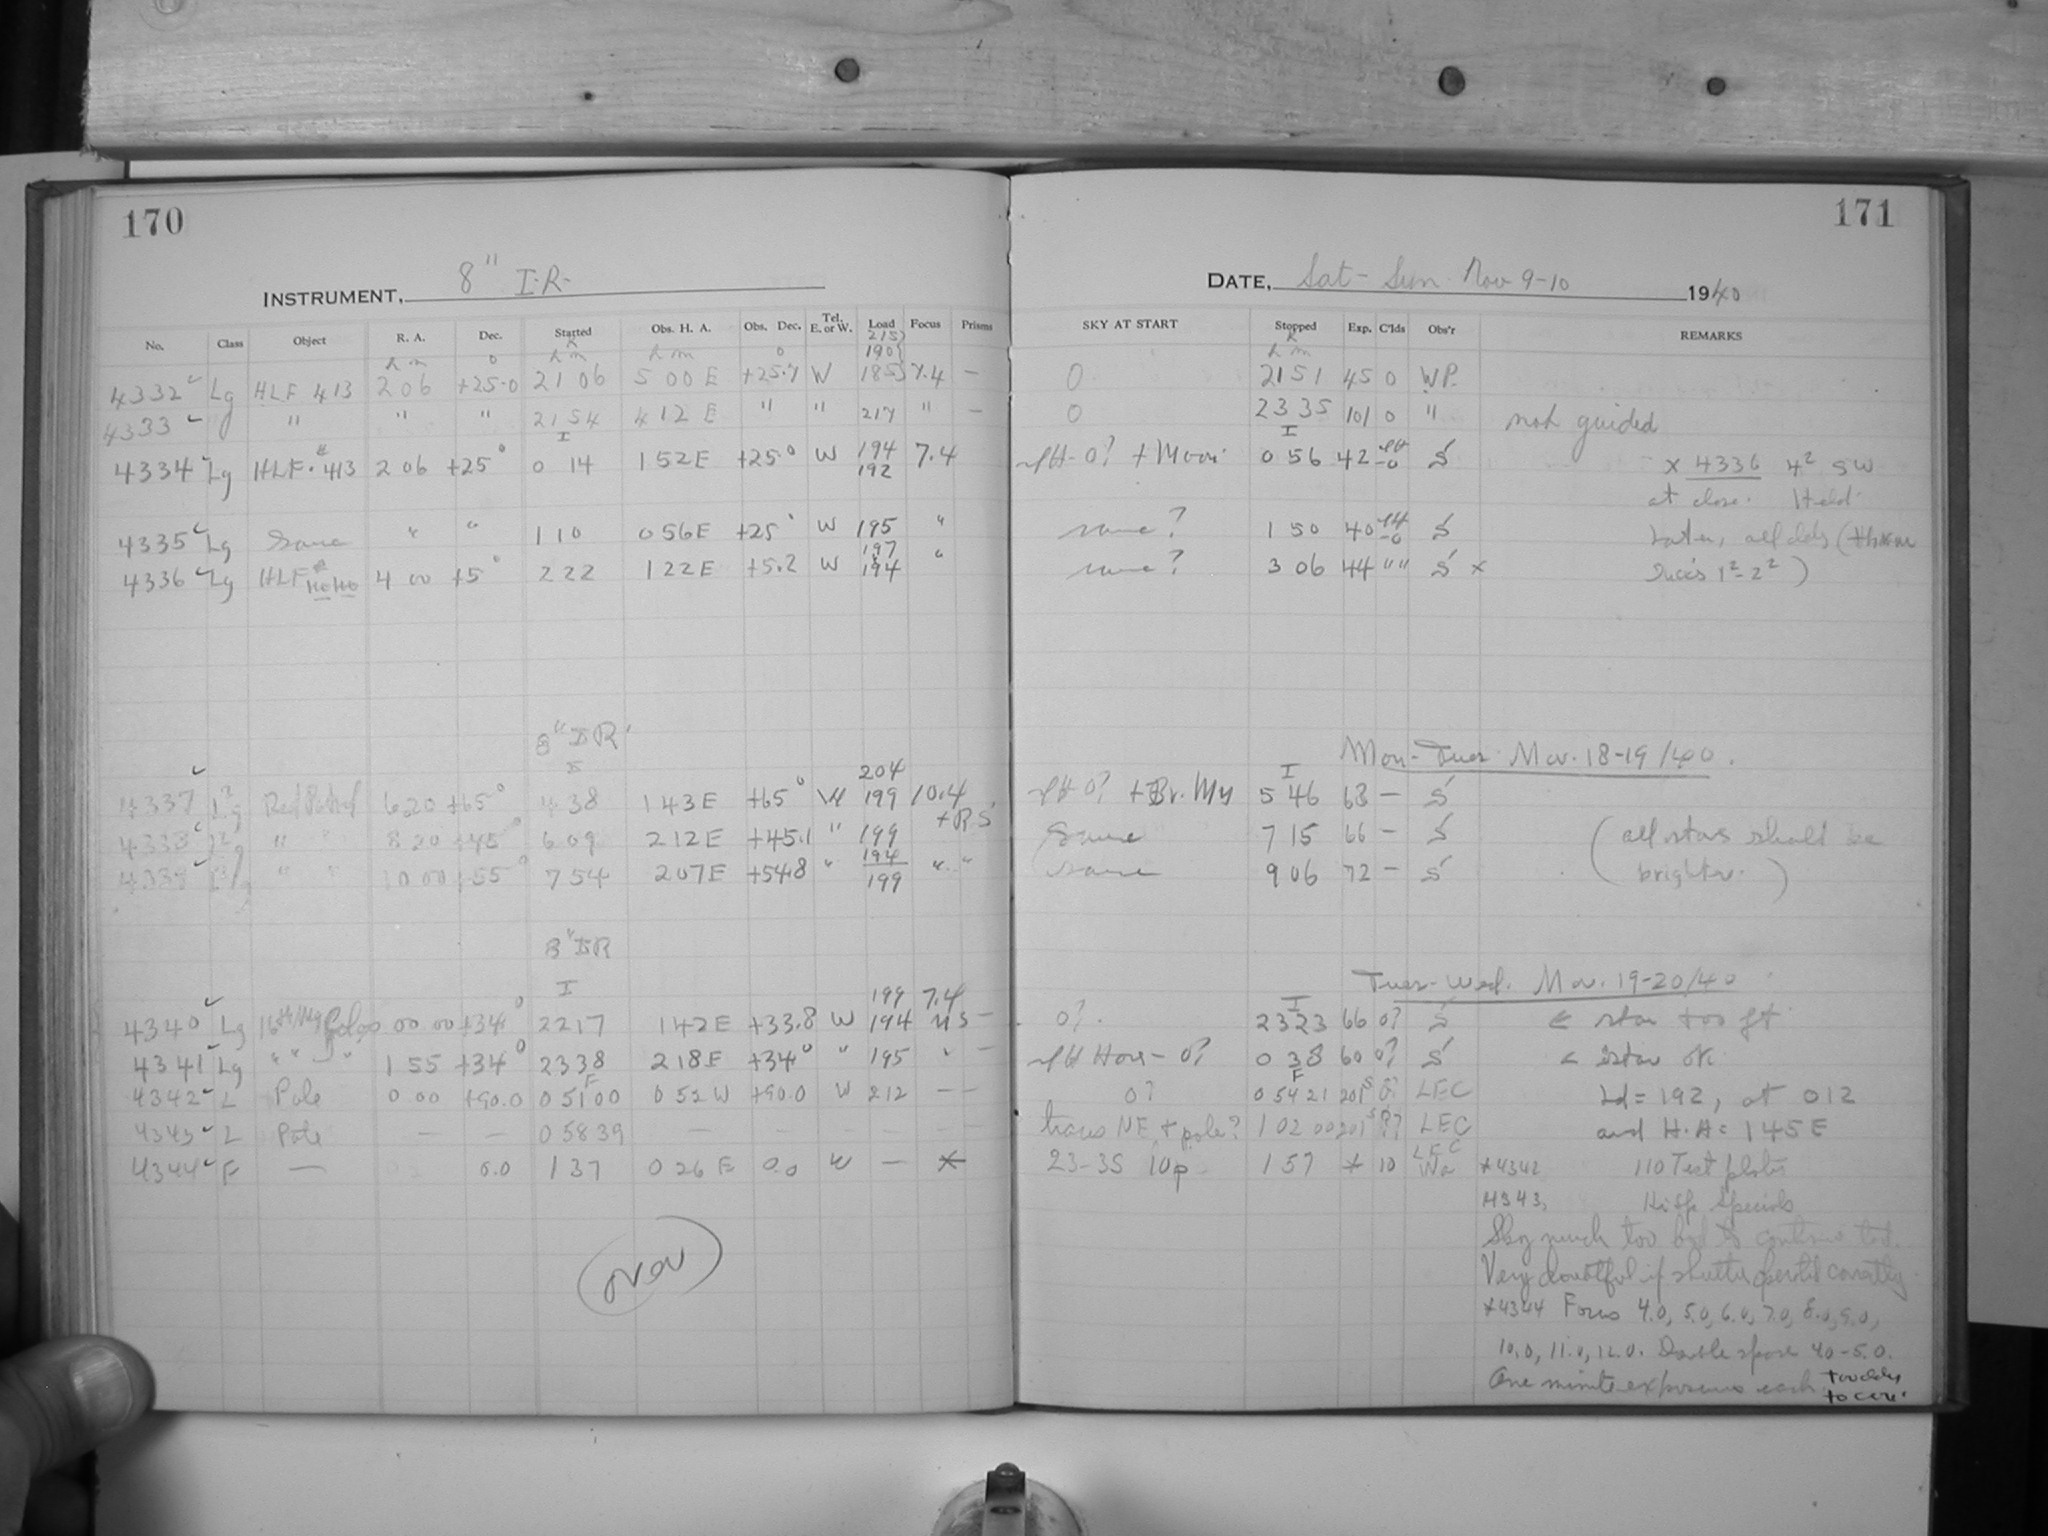 170
INSTRUMENT, 8" I.R.
No. Class Object R. A. Dec. Started Obs. H. A. Obs. Dec. Tel. E. or W. Load Focus Prisms
h m o h m h m o 215 190
4332 Lg HLF 413 2 06 +25.0 21 06 5 00 E +25.7 W 185 7.4 –
4333 " " " 21 54 4 12 E " " 217 " –
4334 Lg HLF. 413 2 06 +25° 0 14 1 52 E +25° W 194 192 7.4
4335 Lg Same " " 1 10 0 56 E +25° W 195 "
4336 Lg HLF 4 00 +5° 2 22 1 22 E +5.2 W 197 194 "
8" IR
4337 Red Patrol 6 20 +65° 4 38 1 43 E +65° W 204 199 10.4 + RS
4338 " " 8 20 +45° 6 09 2 12 E +45.1 " 199
" " 10 00 +55° 7 54 2 07 E +54.8 " 194 199 " "
8" IR
4340 Lg 0 00 +34° 22 17 1 42 E +33.8 W 199 194 7.4 –
4341 Lg " " " 1 55 +34° 23 38 2 18 E +34° " 195 " –
4342 L Pole 0 00 +90.0 0 51 00 0 52 W +90.0 W 212 – –
4343 L Pole – – 0 58 39 – – – – – –
4344 F — 0.0 1 37 0 26 E 0.0 W — *
over
171
DATE, Sat - Sun Nov 9-10 1940
SKY AT START Stopped Exp. C'lds Obs'r REMARKS
h m
0 21 51 45 0 WP.
0 23 35 101 0 " not guided
+ Moon 0 56 42 S x 4336 4² SW
at close. Held
same? 1 50 40 S Later,
same? 3 06 44 " " S x 1²-2²)
Mon-Tues. Nov. 18-19/40.
0? 5 46 68 – S
Same 7 15 66 – S (all stars should be
same 9 06 72 – S brighter.)
Tues-Wed. Nov. 19-20/40
0? 23 23 66 0? S < star too ft
0? 0 38 60 0? S < star ok
0? 0 54 21 201s 0? LEC Ld = 192, at 0 12
NE + pole? 1 02 00 201s ?? LEC and H.A = 1 45 E
23-35 10p 1 57 * 10 LEC *4342 110 Test plates
4343, Specials
Sky much too bad to continue test.
Very doubtful if shutter operated correctly.
*4344 Focus 4.0, 5.0, 6.0, 7.0, 8.0, 9.0,
10.0, 11.0, 12.0. Double space 4.0-5.0.
One minute exposures each too cldy
to con.